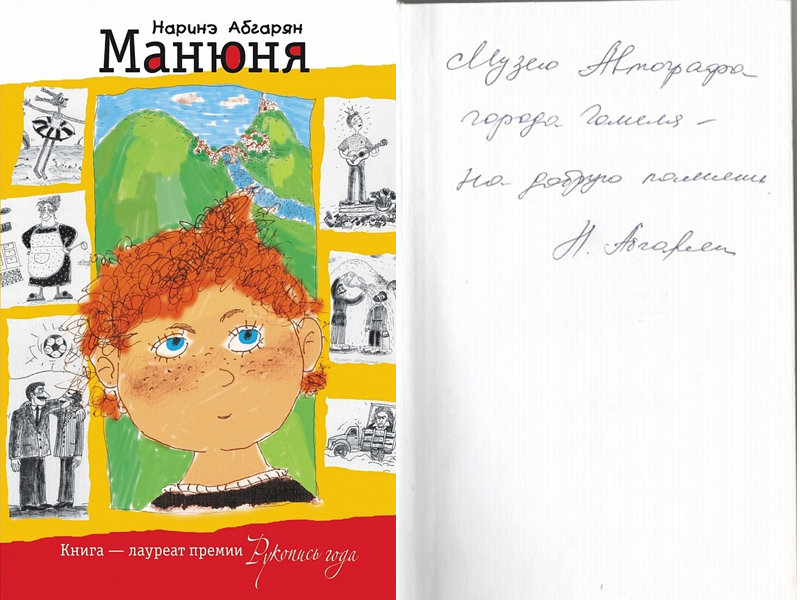 Наринэ Абгарян
Манюня
Книга — лауреат премии Рукопись года
Музею Автографа
города Гомеля –
на добрую память.
Н. Абгарян